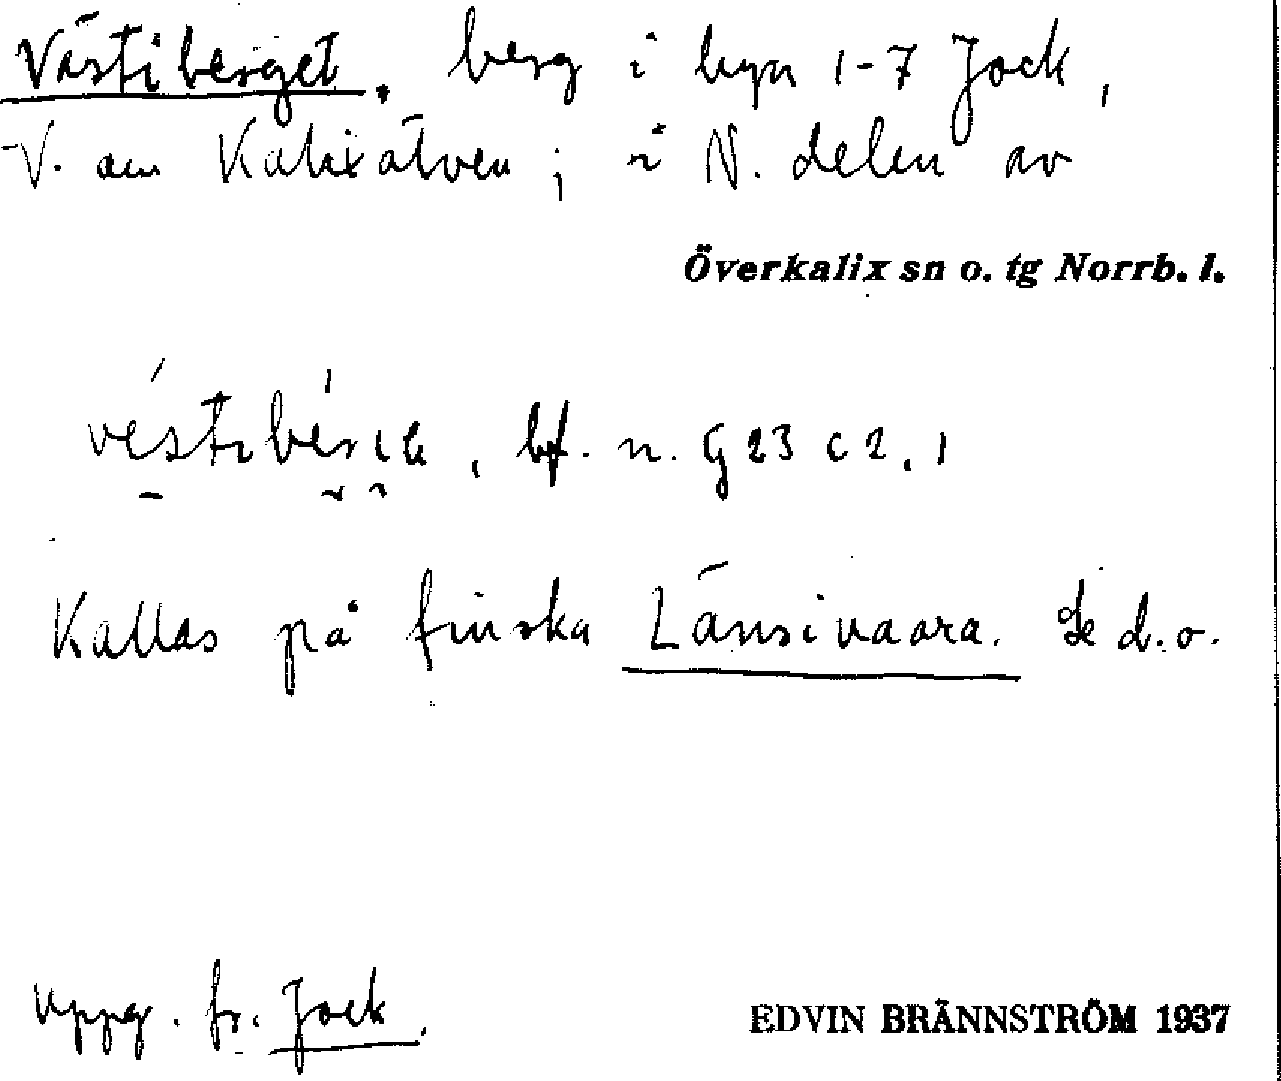 Västiberget, berg i byn 1-7 Jock,
V. om Kalixälven; i N. delen av
Överkalix sn o. tg Norrb. l.
bf. n. G 23 c 2, 1
Kallas på finska Länsivaara. Se d.o.
Uppg. fr. Jock.
EDVIN BRÄNNSTRÖM 1937